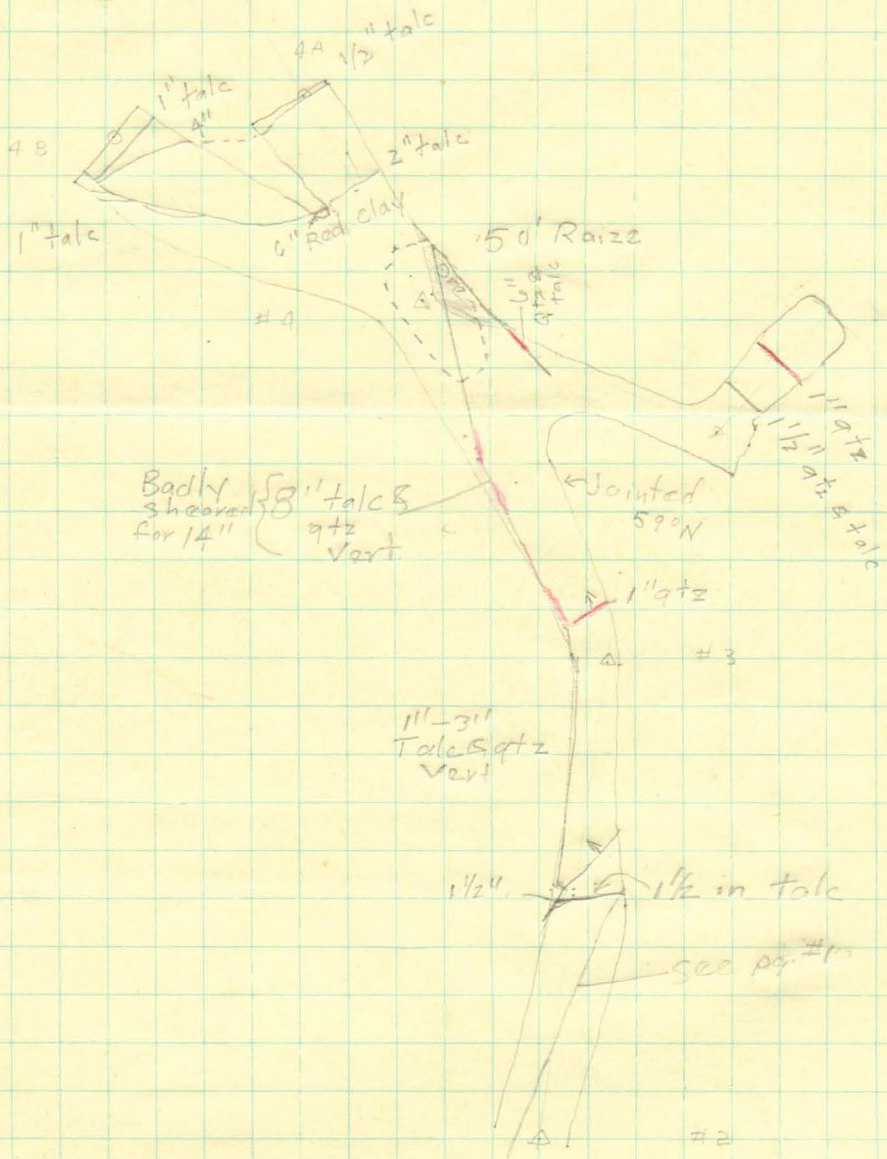 4A
1/2" talc
1" talc
4"
4 B
2" talc
1" talc
6" Red Clay
50' Raize
Ore
3"
qtz &
talc
#4
1" qtz
1 1/2" qtz & talc
Badly
sheared
for 14"
8" talc &
qtz
Vert
Jointed
59°N
1" qtz
#3
1"-3"
Talc & qtz
Vert
1 1/2"
1 1/2 in talc
see pg. #1
#2